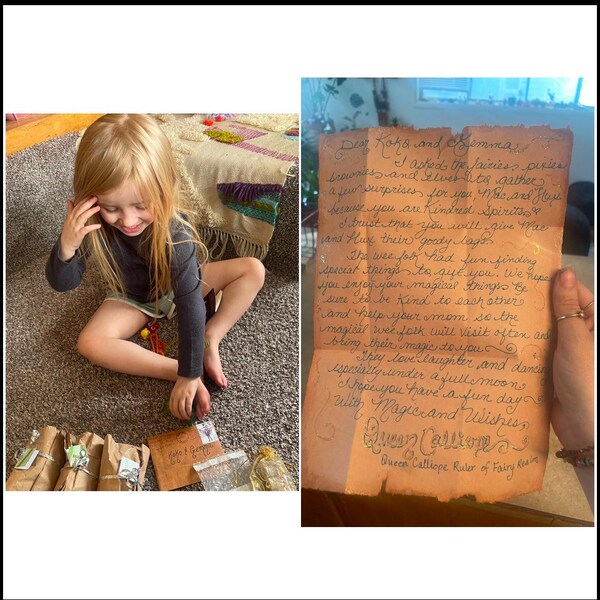 Koko & Gemma
Dear Koko and Gemma,
I asked the fairies, pixies
brownies, and elves to gather
a fun surprises for you, Mac and Huxe
because you are Kindred Spirits
I trust that you will give Mac
and Huxe their goody bags.
The wee folk had fun finding
special things to gift you. We hope
you enjoy your magical things. Be
sure to be kind to each other
and help your mom so the
magical wee folk will visit often and
bring their magic to you
They love laughter and dancing
especially under a full moon
I hope you have a fun day
With Magic and Wishes
Queen Calliope
Queen Calliope Ruler of Fairy Realm